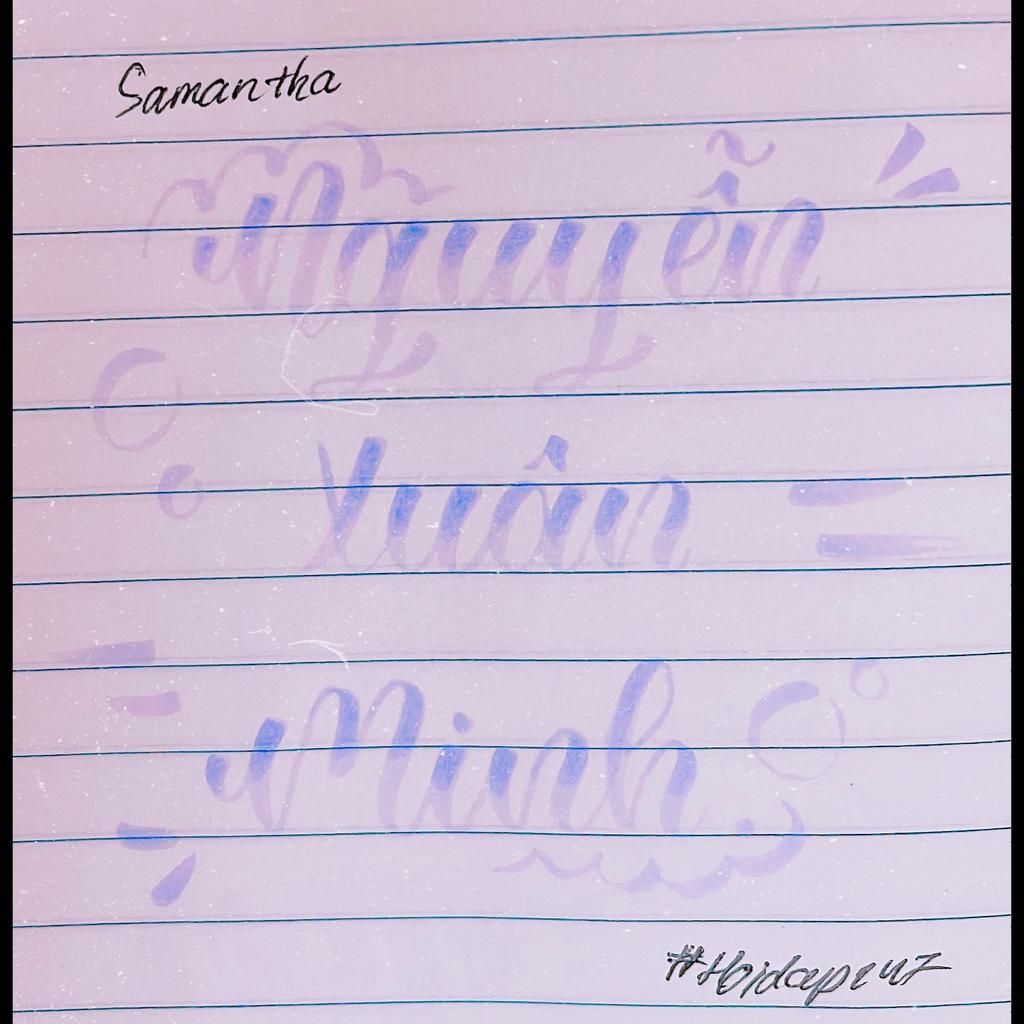 Samantha
Nguyễn
Xuân
Minh
#Hoidap247